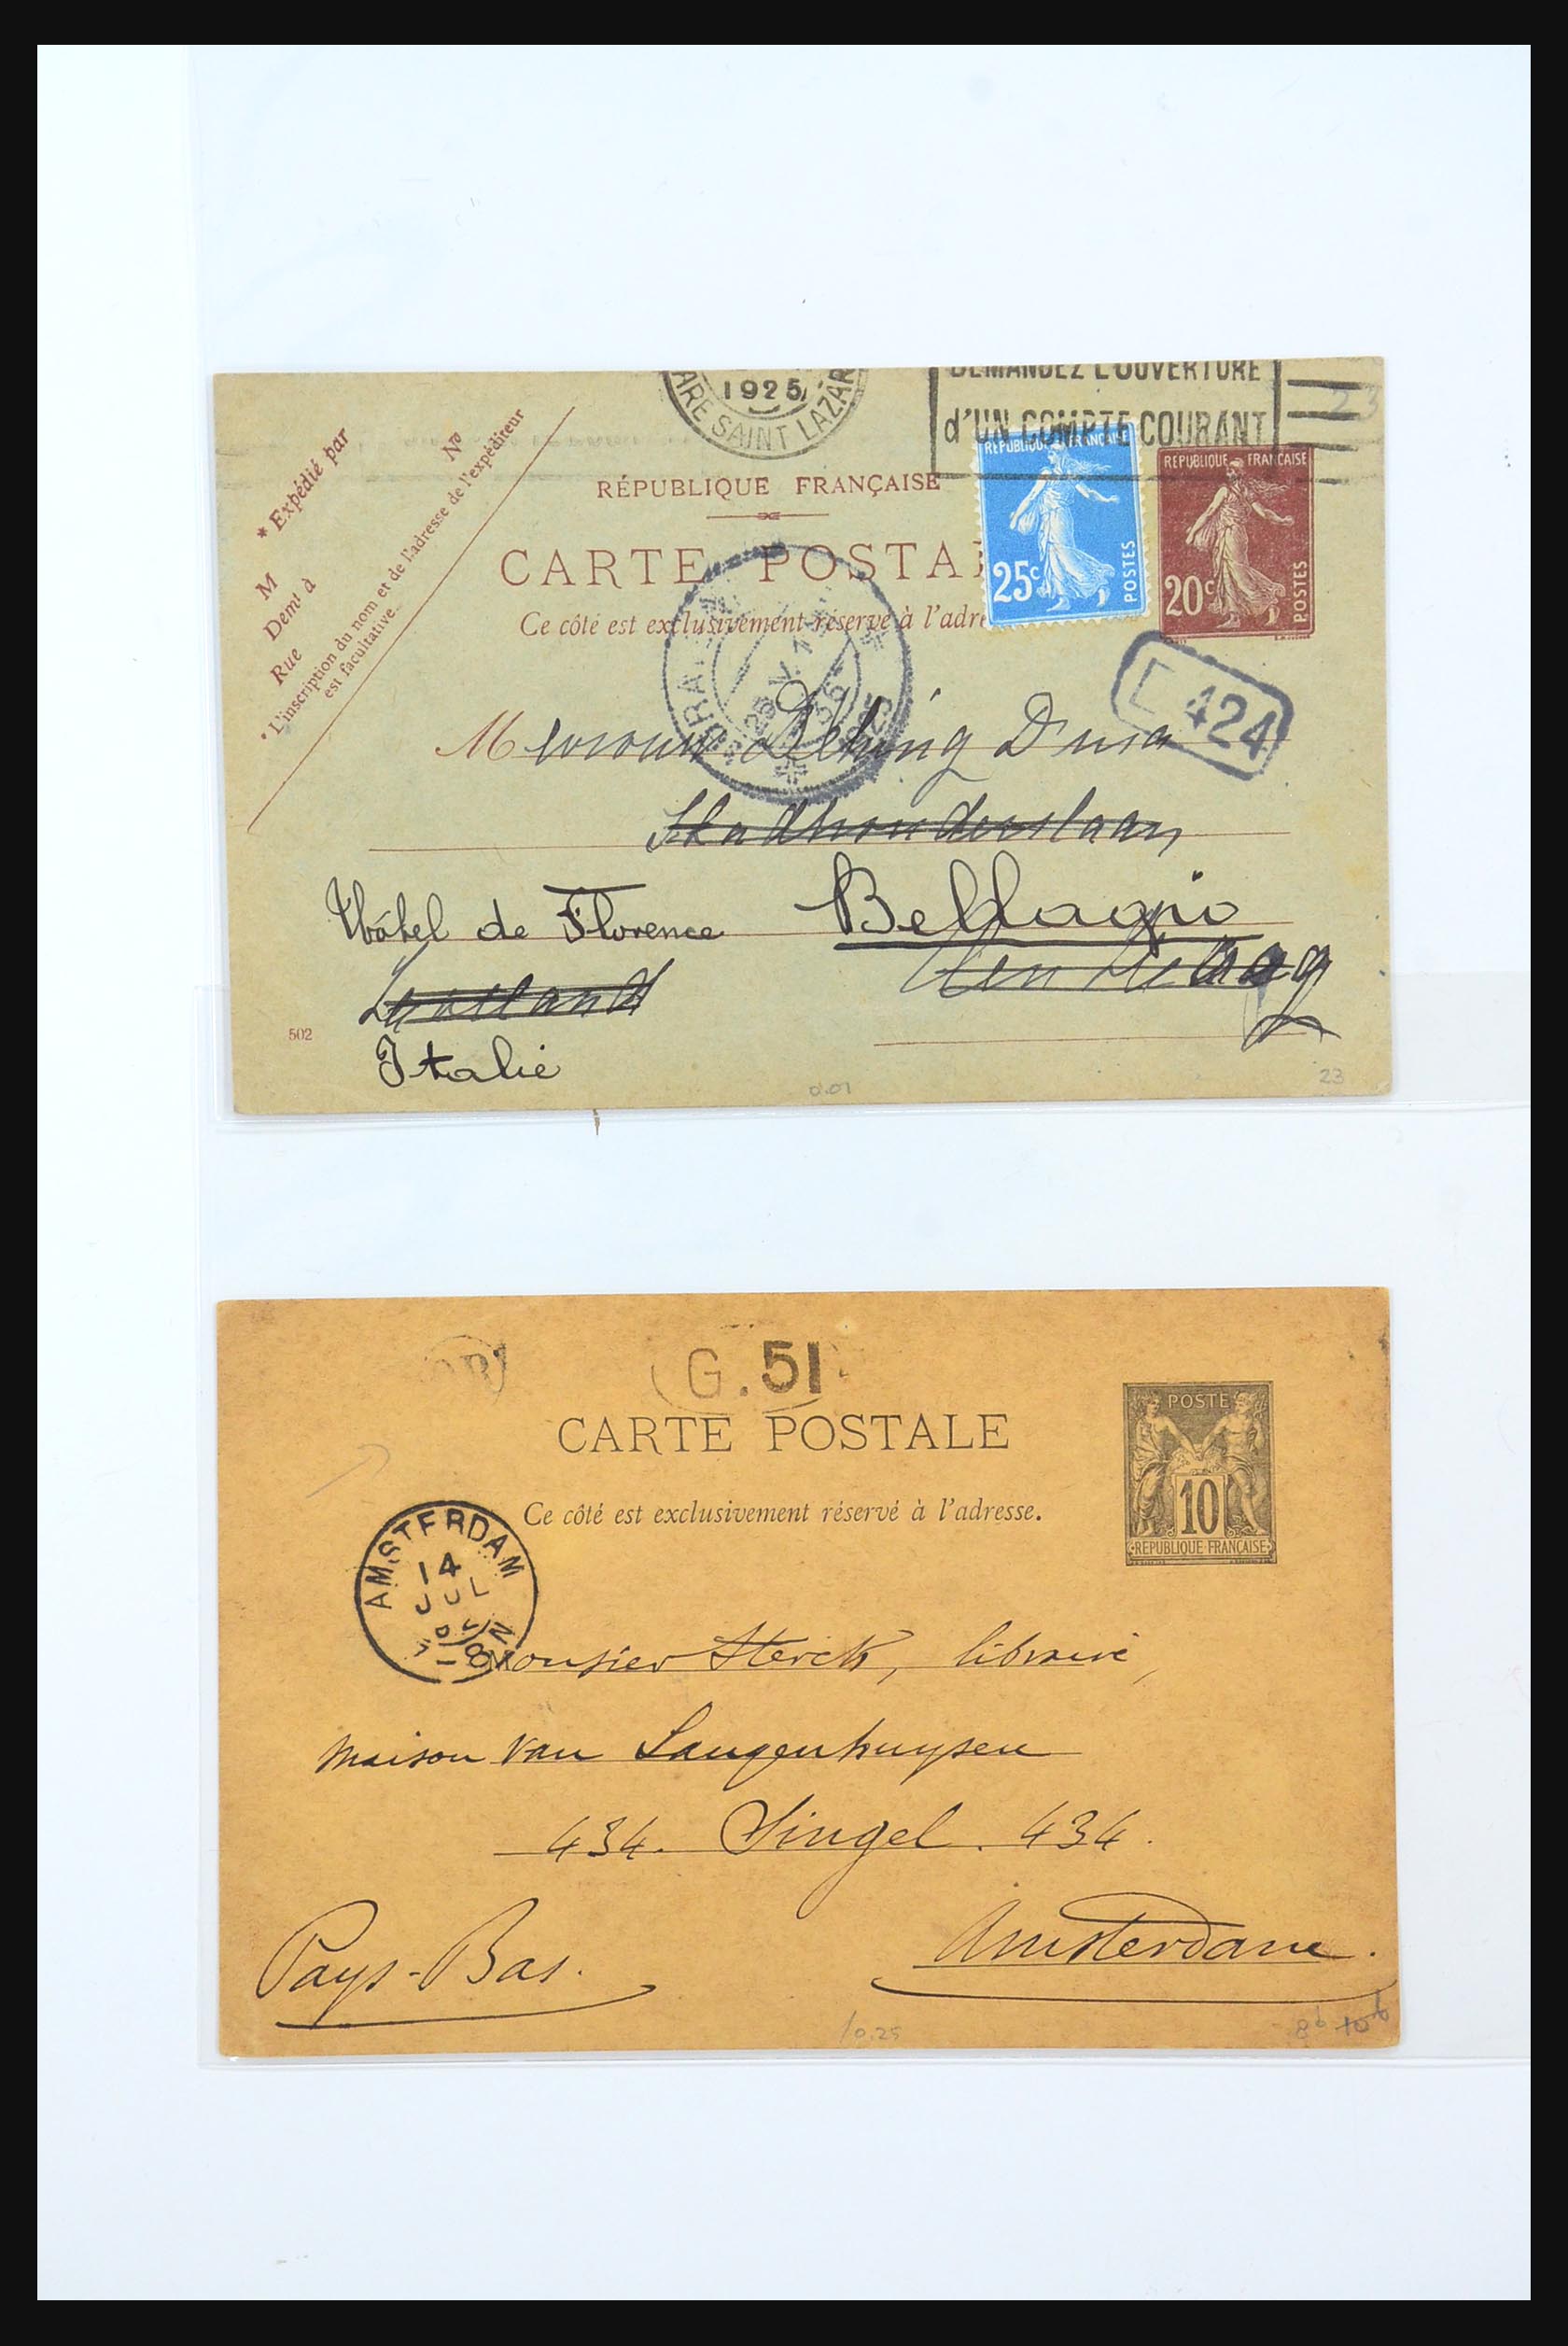 DEMANDEZ L'OUVERTURE
d'UN COMPTE COURANT
1925
GARE SAINT LAZARE
23
* Expédié par
M
Nº
Demt à
Rue
* L'inscription du nom et de l'adresse de l'expéditeur
est facultative.
RÉPUBLIQUE FRANÇAISE
CARTE POSTA
Ce côté est exclusivement réservé à l'adre
REPUBLIQUE FRANÇAISE
25c
POSTES
REPUBLIQUE FRANCAISE
20c
POSTES
424
Mevrouw
Stadhouderslaan
Hôtel de Florence Bellagio
Den Haag
Italie
502
0.01
23
G. 51
CARTE POSTALE
Ce côté est exclusivement réservé à l'adresse.
POSTE
10
REPUBLIQUE FRANÇAISE
AMSTERDAM
14
JUL
7-8N
Monsieur Sterck, libraire,
maison van Langenhuysen
434. Singel. 434.
Amsterdam.
Pays-Bas.
/0.25